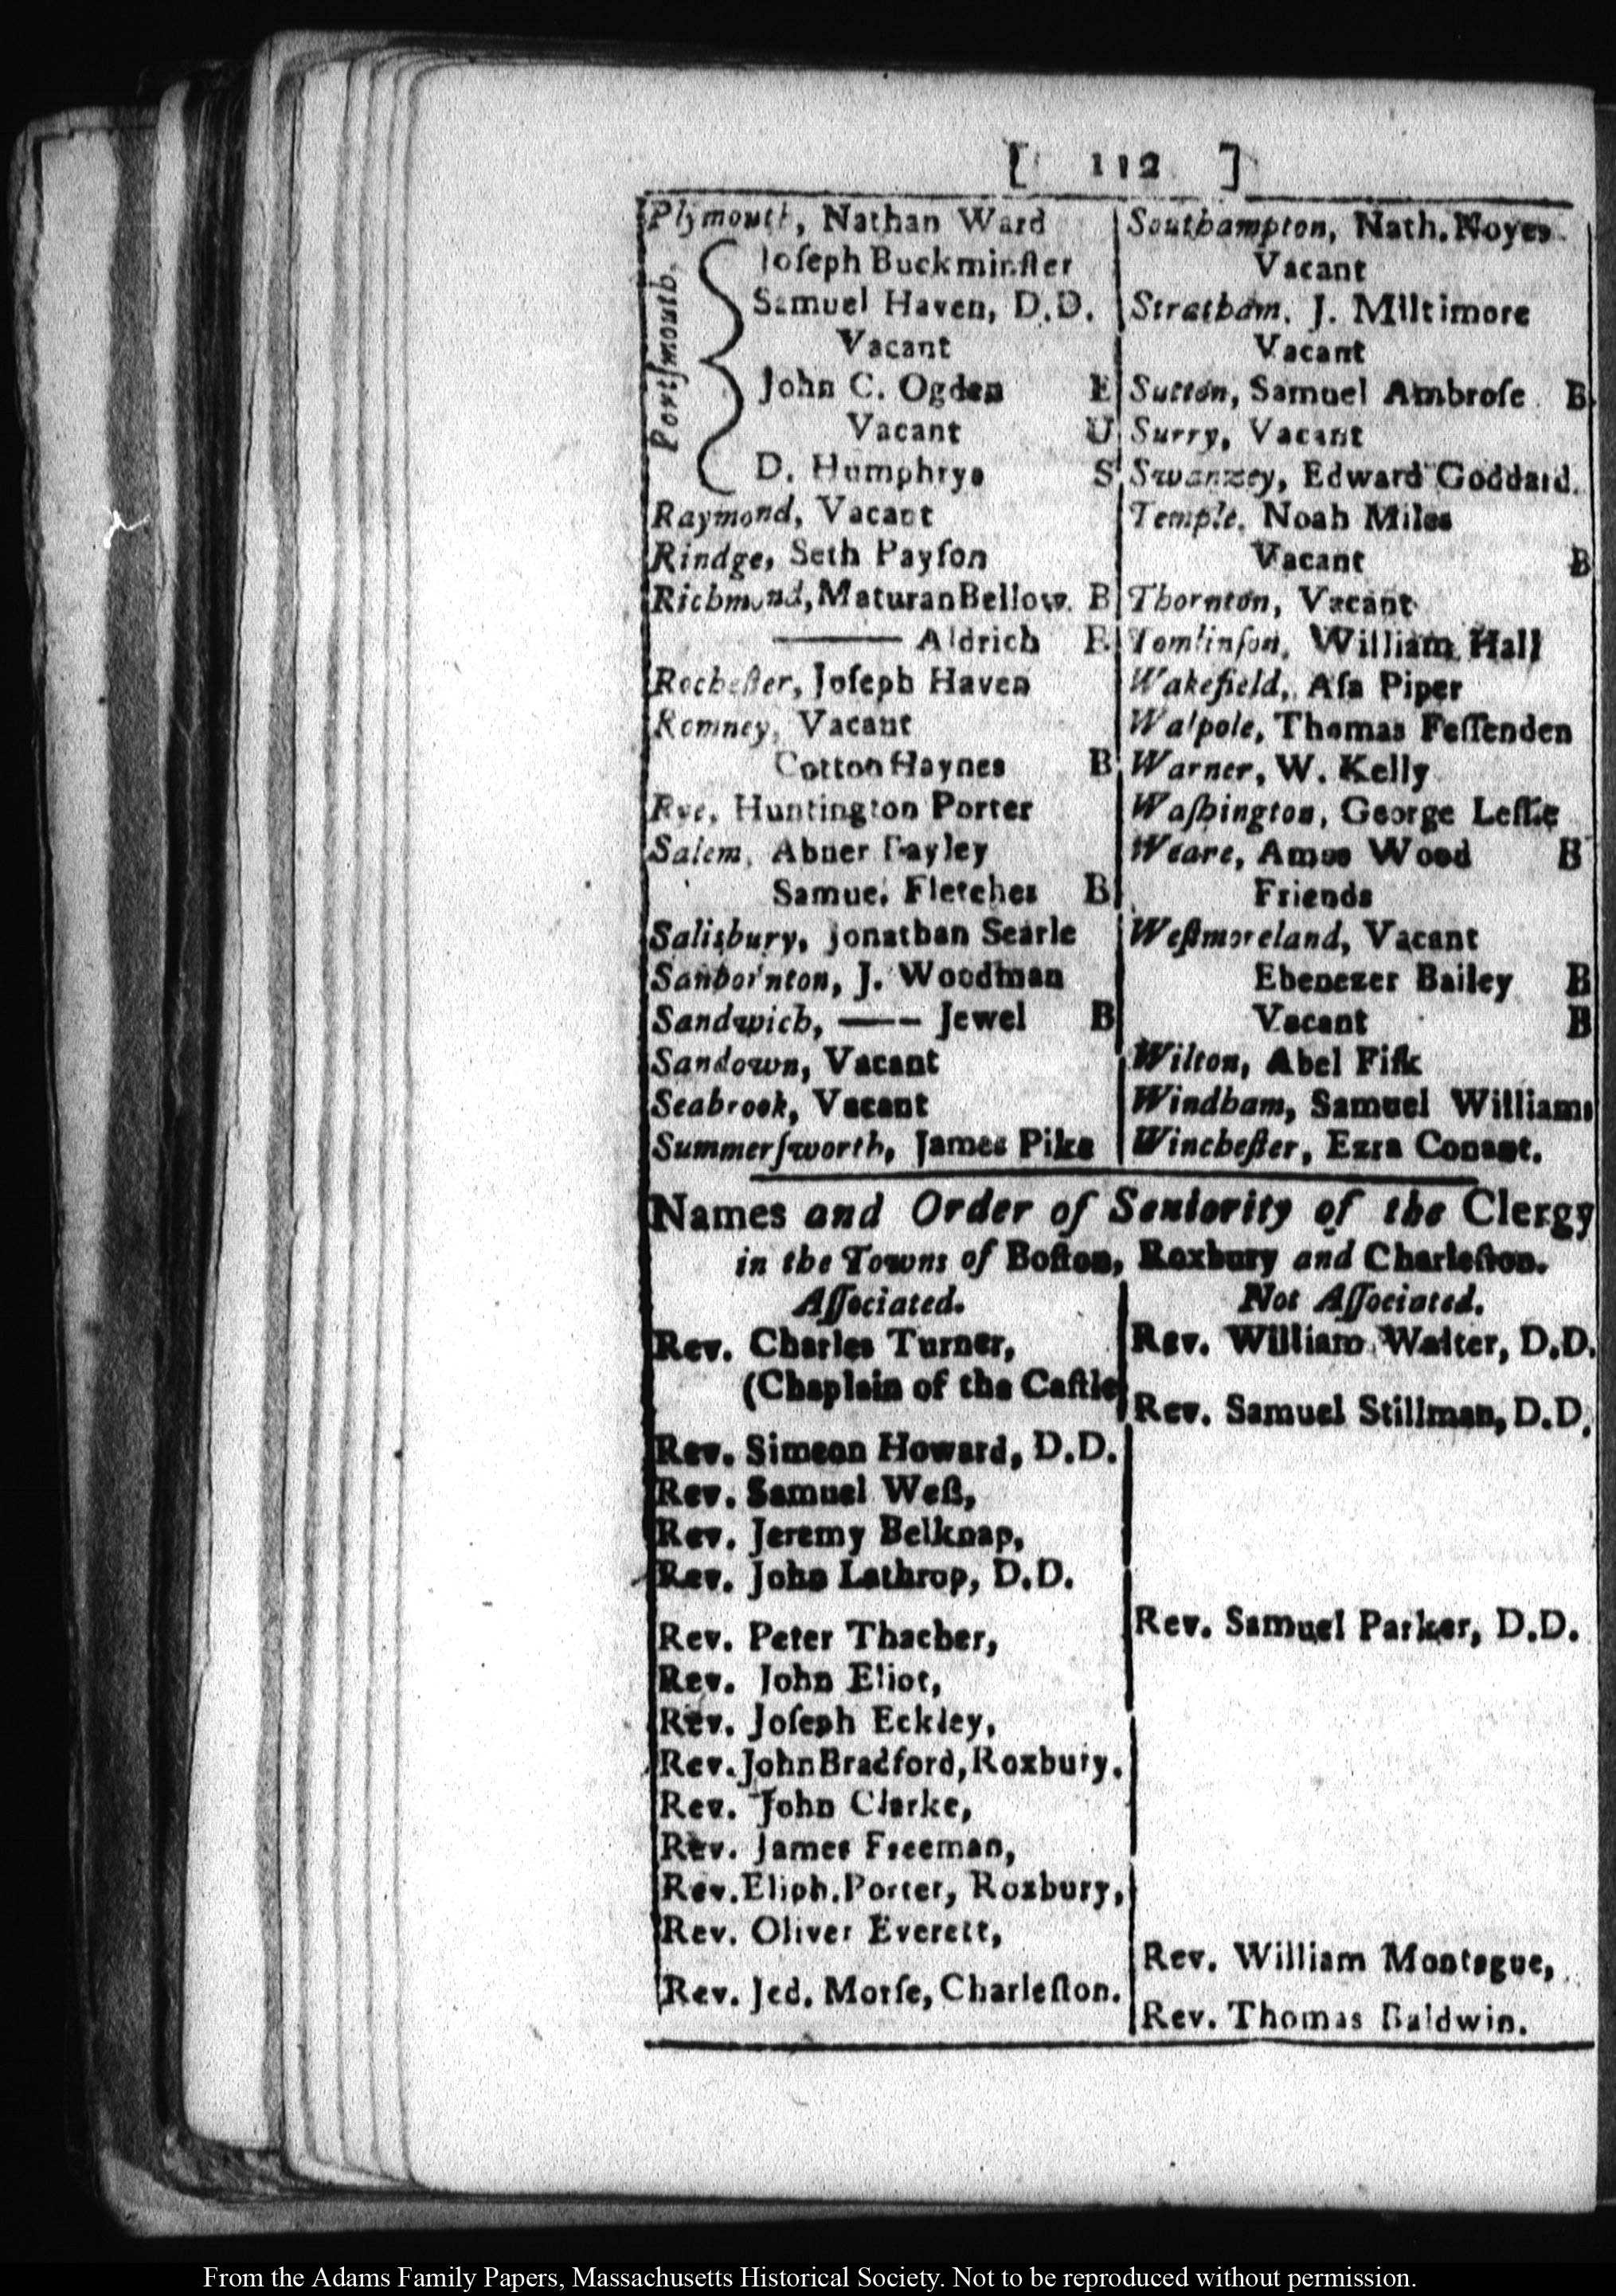 [ 112 ]
Plymouth, Nathan Ward
Portſmouth,
Joſeph Buckminſter
Samuel Haven, D.D.
Vacant
John C. Ogden E
Vacant U
D. Humphrys S
Raymond, Vacant
Rindge, Seth Payſon
Richmond, Maturan Bellow. B
—— Aldrich
Rocheſter, Joſeph Haven
Romney, Vacant
Cotton Haynes B
Rye, Huntington Porter
Salem, Abner Bayley
Samuel Fletcher B
Salisbury, Jonathan Searle
Sanbornton, J. Woodman
Sandwich, —— Jewel B
Sandown, Vacant
Seabrook, Vacant
Summerſworth, James Pike
Southampton, Nath. Noyes
Vacant
Stratham, J. Miltimore
Vacant
Sutton, Samuel Ambroſe B
Surry, Vacant
Swanzey, Edward Goddard.
Temple, Noah Miles
Vacant B
Thornton, Vacant
Tomlinſon, William Hall
Wakefield, Aſa Piper
Walpole, Thomas Feſſenden
Warner, W. Kelly
Waſhington, George Leſlie
Weare, Amos Wood B
Friends
Weſtmoreland, Vacant
Ebenezer Bailey B
Vacant B
Wilton, Abel Fiſk
Windham, Samuel Williams
Wincheſter, Ezra Conant.
Names and Order of Seniority of the Clergy
in the Towns of Boſton, Roxbury and Charleſton.
Aſſociated.
Rev. Charles Turner,
(Chaplain of the Caſtle
Rev. Simeon Howard, D.D.
Rev. Samuel Weſt,
Rev. Jeremy Belknap,
Rev. John Lathrop, D.D.
Rev. Peter Thacher,
Rev. John Eliot,
Rev. Joſeph Eckley,
Rev. John Bradford, Roxbury,
Rev. John Clarke,
Rev. James Freeman,
Rev. Eliph. Porter, Roxbury,
Rev. Oliver Everett,
Rev. Jed. Morſe, Charleſton.
Not Aſſociated.
Rev. William Walter, D.D.
Rev. Samuel Stillman, D.D.
Rev. Samuel Parker, D.D.
Rev. William Montague,
Rev. Thomas Baldwin.
From the Adams Family Papers, Massachusetts Historical Society. Not to be reproduced without permission.